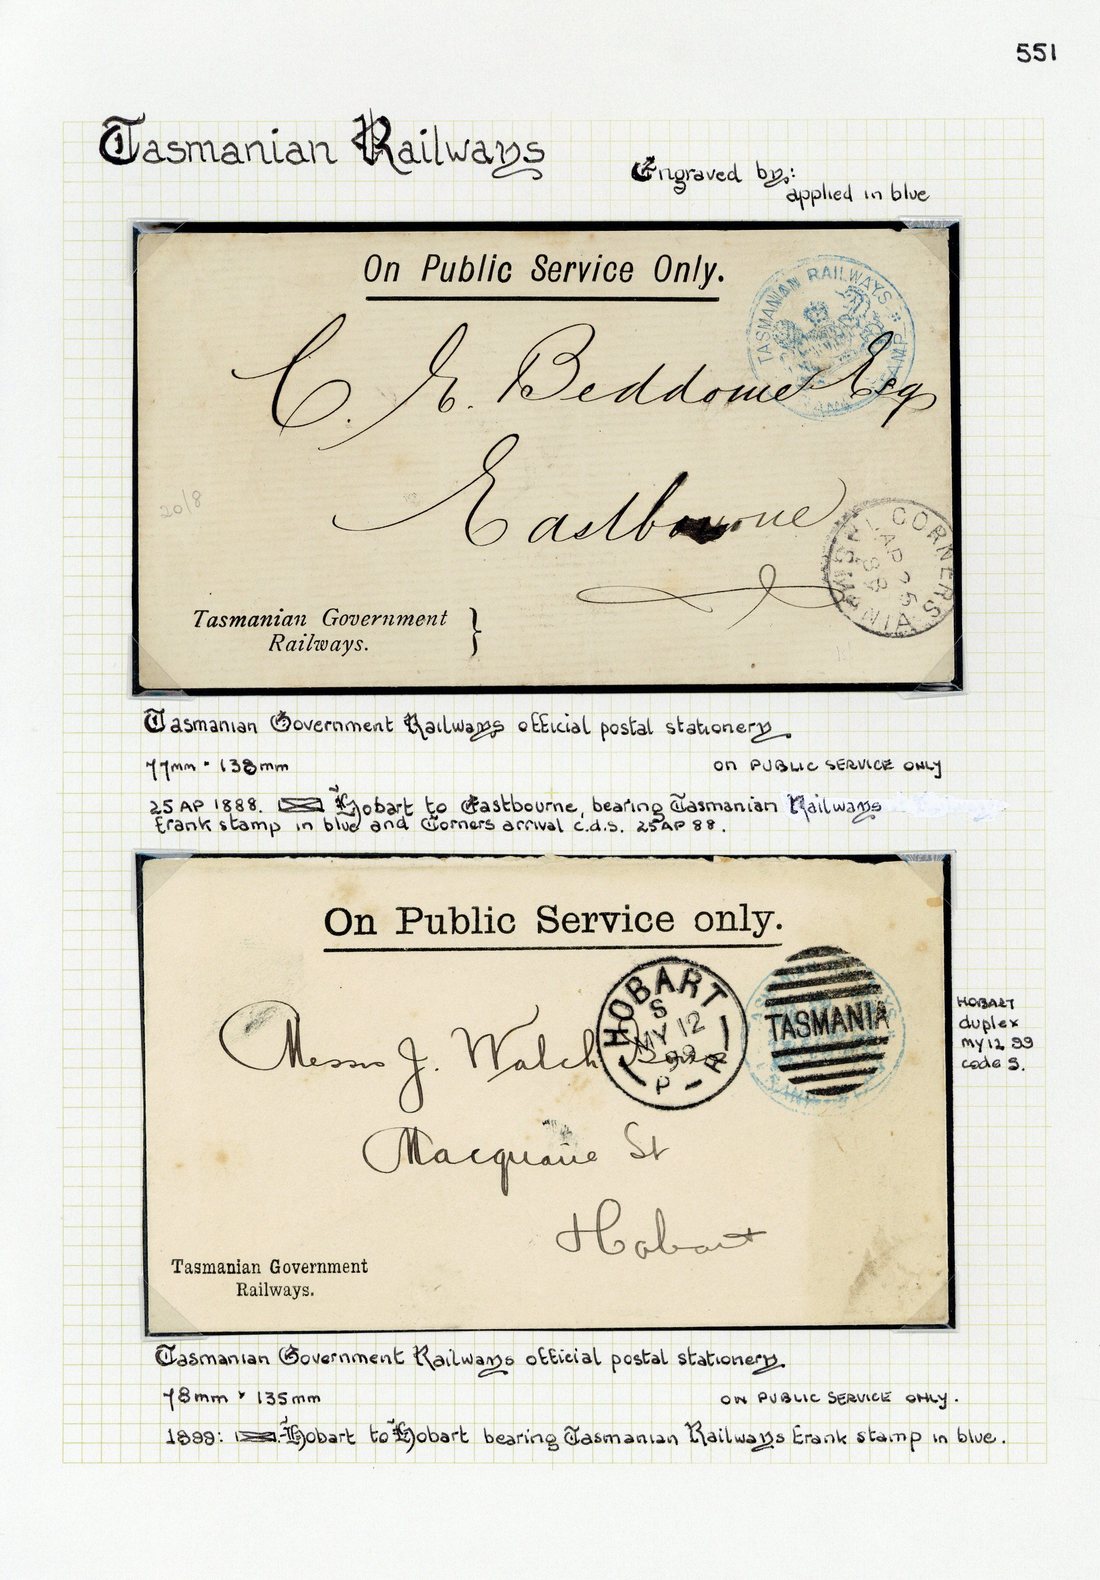 551
Tasmanian Railways
Engraved by:
applied in blue
On Public Service Only.
TASMANIAN RAILWAYS
STAMP
C. E. Beddome Esq
Eastbourne
20/8
CORNERS
AP 25
88
TASMANIA
Tasmanian Government
Railways.
Tasmanian Government Railways official postal stationery
77mm · 138mm
ON PUBLIC SERVICE ONLY
25 AP 1888. Hobart to Eastbourne, bearing Tasmanian Railways
frank stamp in blue and Corners arrival c.d.s. 25 AP 88.
On Public Service only.
HOBART
S
MY 12
99
TASMANIA
Messrs J. Walch
Macquarie St
Hobart
HOBART
duplex
MY 12 99
code S.
Tasmanian Government
Railways.
Tasmanian Government Railways official postal stationery.
78mm × 135mm
ON PUBLIC SERVICE ONLY.
1899: Hobart to Hobart bearing Tasmanian Railways frank stamp in blue.